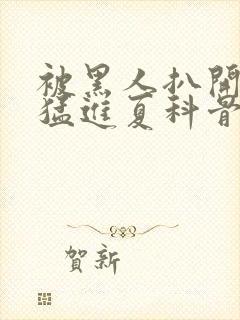 被黑人扒開
猛進夏科骨
賀新